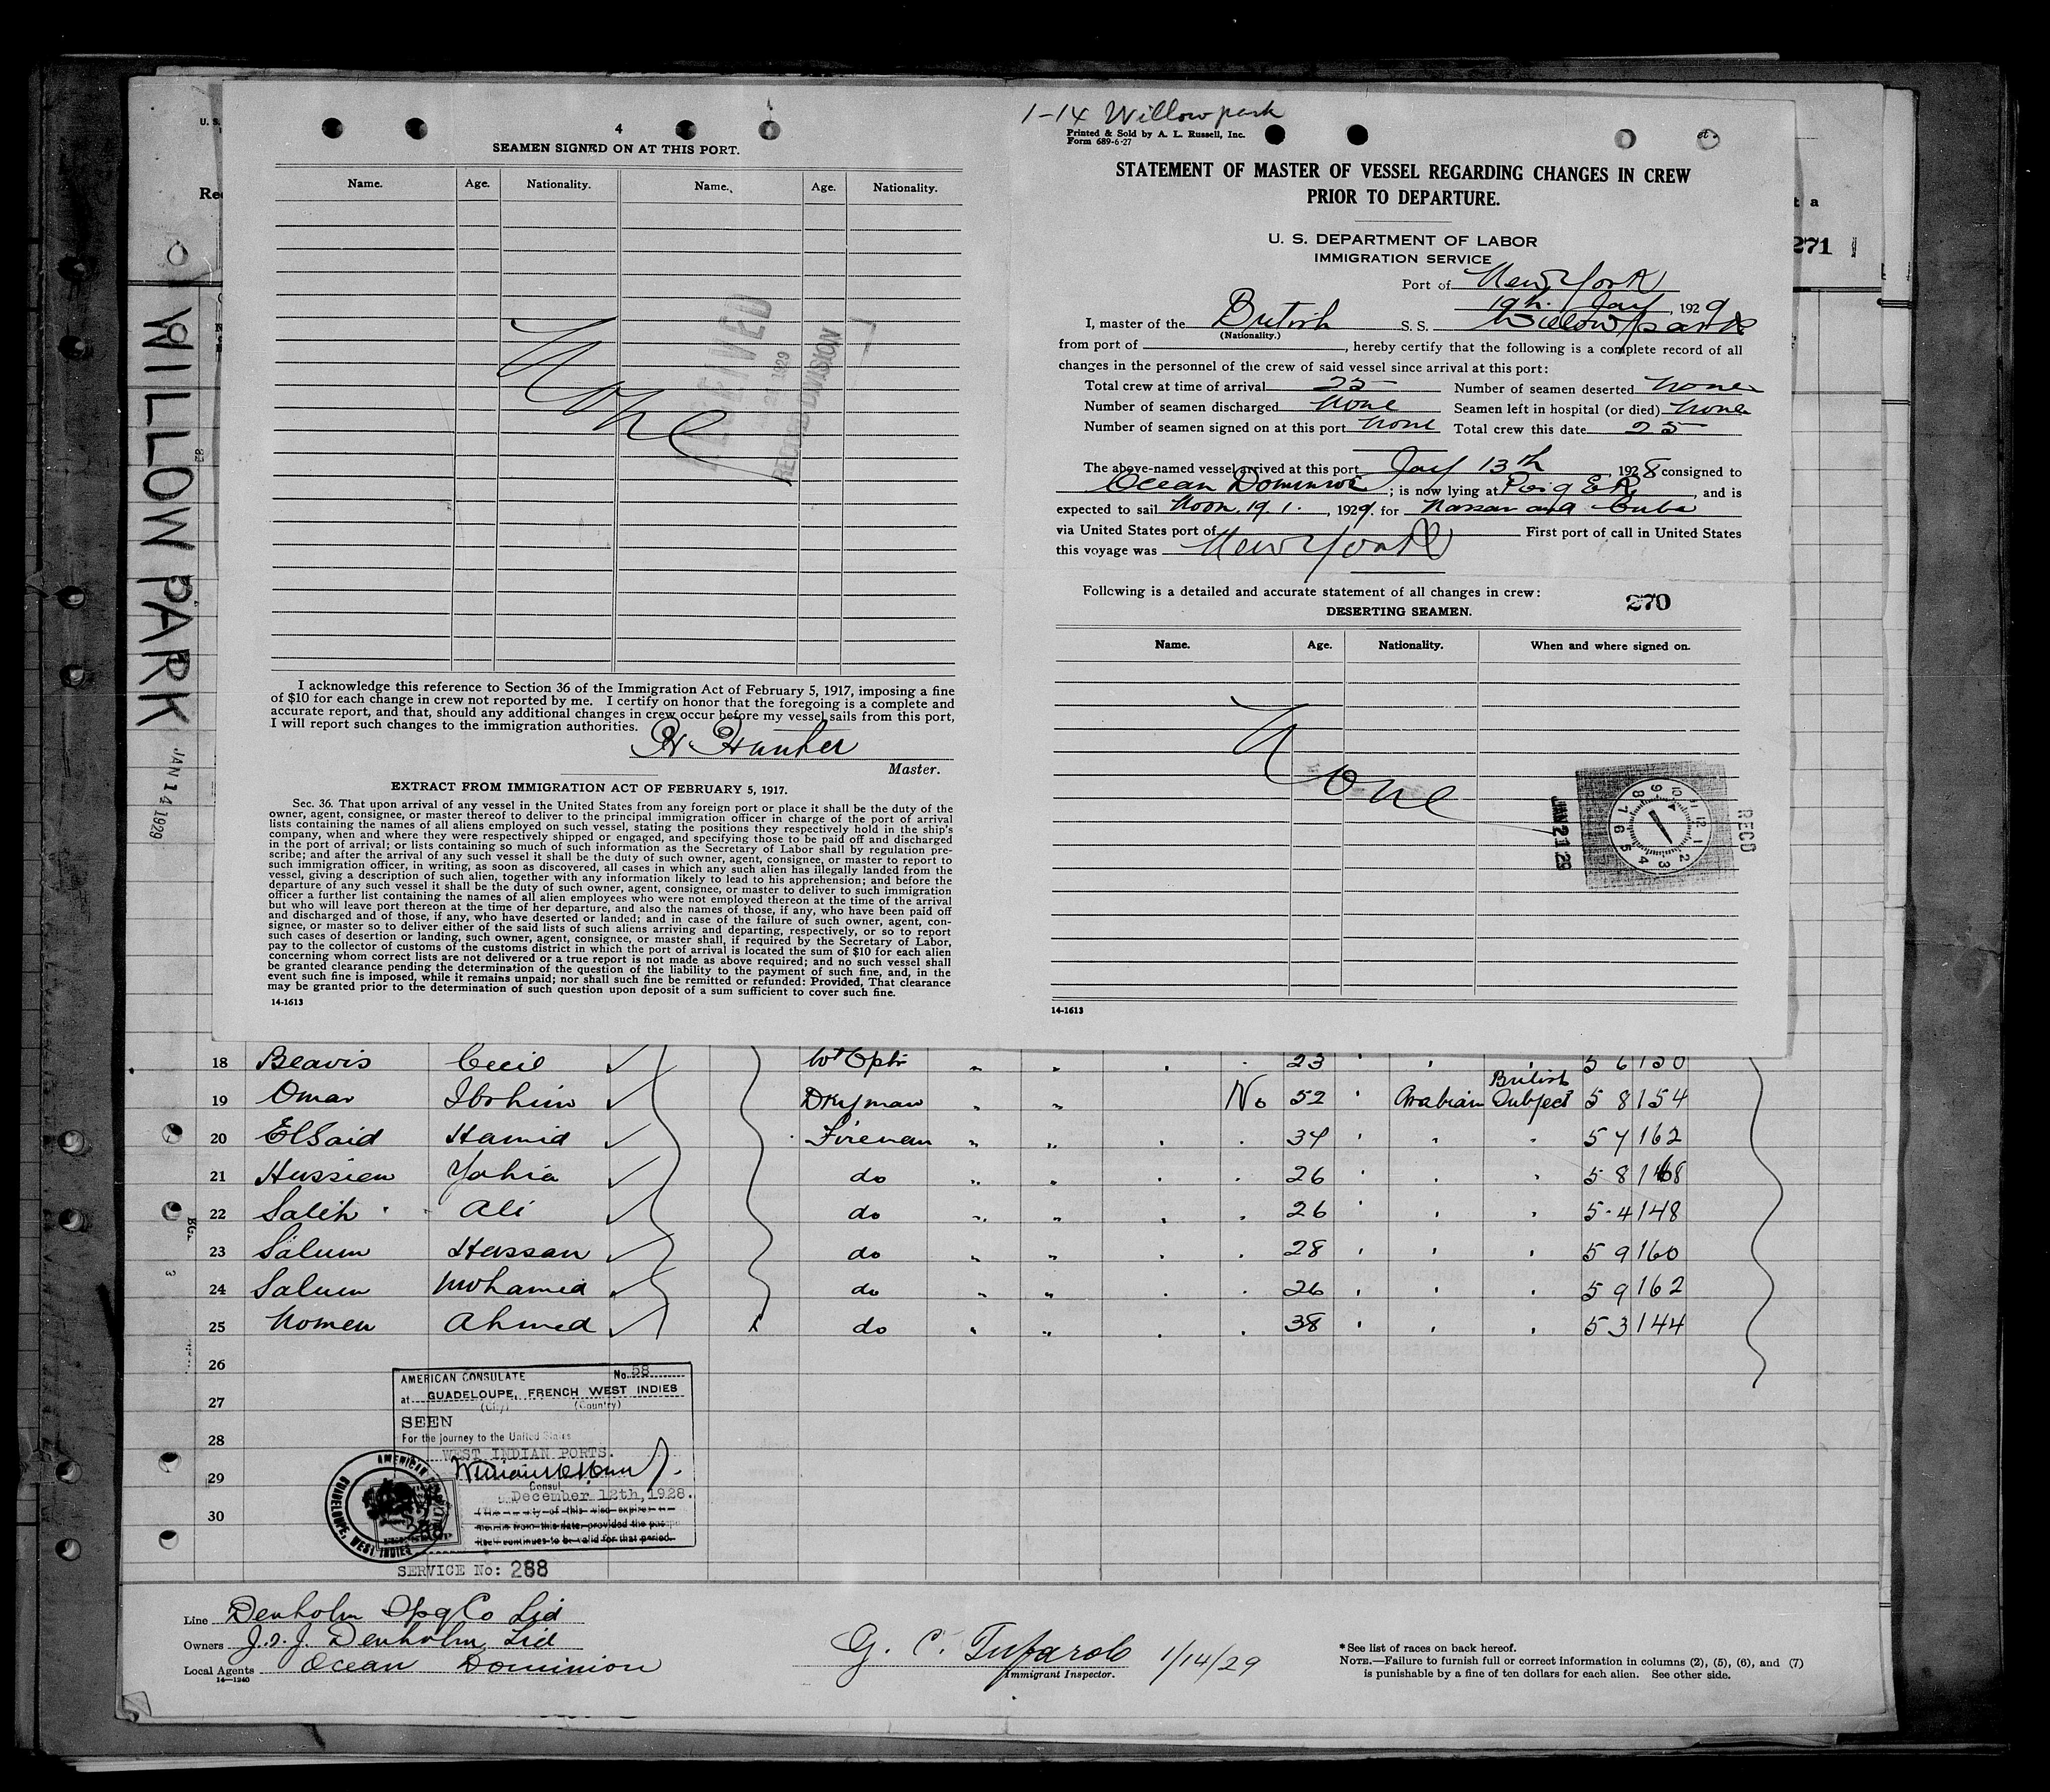 WILLOW PARK
JAN 14 1929
U. S.
4
SEAMEN SIGNED ON AT THIS PORT.
Name. Age. Nationality. Name. Age. Nationality.
None
RECEIVED
1929
RECORD DIVISION
I acknowledge this reference to Section 36 of the Immigration Act of February 5, 1917, imposing a fine
of $10 for each change in crew not reported by me. I certify on honor that the foregoing is a complete and
accurate report, and that, should any additional changes in crew occur before my vessel sails from this port,
I will report such changes to the immigration authorities.
H Hunter
Master.
EXTRACT FROM IMMIGRATION ACT OF FEBRUARY 5, 1917.
Sec. 36. That upon arrival of any vessel in the United States from any foreign port or place it shall be the duty of the
owner, agent, consignee, or master thereof to deliver to the principal immigration officer in charge of the port of arrival
lists containing the names of all aliens employed on such vessel, stating the positions they respectively hold in the ship's
company, when and where they were respectively shipped or engaged, and specifying those to be paid off and discharged
in the port of arrival; or lists containing so much of such information as the Secretary of Labor shall by regulation pre-
scribe; and after the arrival of any such vessel it shall be the duty of such owner, agent, consignee, or master to report to
such immigration officer, in writing, as soon as discovered, all cases in which any such alien has illegally landed from the
vessel, giving a description of such alien, together with any information likely to lead to his apprehension; and before the
departure of any such vessel it shall be the duty of such owner, agent, consignee, or master to deliver to such immigration
officer a further list containing the names of all alien employees who were not employed thereon at the time of the arrival
but who will leave port thereon at the time of her departure, and also the names of those, if any, who have been paid off
and discharged and of those, if any, who have deserted or landed; and in case of the failure of such owner, agent, con-
signee, or master so to deliver either of the said lists of such aliens arriving and departing, respectively, or so to report
such cases of desertion or landing, such owner, agent, consignee, or master shall, if required by the Secretary of Labor,
pay to the collector of customs of the customs district in which the port of arrival is located the sum of $10 for each alien
concerning whom correct lists are not delivered or a true report is not made as above required; and no such vessel shall
be granted clearance pending the determination of the question of the liability to the payment of such fine, and, in the
event such fine is imposed, while it remains unpaid; nor shall such fine be remitted or refunded: Provided, That clearance
may be granted prior to the determination of such question upon deposit of a sum sufficient to cover such fine.
14-1613
1-14 Willowpark
Printed & Sold by A. L. Russell, Inc.
Form 689-6-27
STATEMENT OF MASTER OF VESSEL REGARDING CHANGES IN CREW
PRIOR TO DEPARTURE.
U. S. DEPARTMENT OF LABOR
IMMIGRATION SERVICE
Port of New York
19th. Jay, 1929
I, master of the British S. S. Willowpark
(Nationality.)
from port of , hereby certify that the following is a complete record of all
changes in the personnel of the crew of said vessel since arrival at this port:
Total crew at time of arrival 25 Number of seamen deserted None
Number of seamen discharged None Seamen left in hospital (or died) None
Number of seamen signed on at this port None Total crew this date 25
The above-named vessel arrived at this port Jay 13th, 1928 consigned to
Ocean Dominion; is now lying at Pier 9 ER, and is
expected to sail Noon. 19. 1., 1929. for Nassau and Cuba
via United States port of First port of call in United States
this voyage was New York
Following is a detailed and accurate statement of all changes in crew:
270
DESERTING SEAMEN.
Name. Age. Nationality. When and where signed on.
None
JAN 21 29
RECD
14-1613
271
18 Beavis Cecil W' Optr 23 5 6 150
19 Omar Ibrhim Dkyman No 52 Arabian British Subject 5 8 154
20 ElSaid Hamid Fireman 34 5 7 162
21 Hussien Yahia do 26 5 8 168
22 Salih Ali do 26 5.4 148
23 Salum Hassan do 28 5 9 160
24 Salum Mohamed do 26 5 9 162
25 Nomen Ahmed do 38 5 3 144
26
27
28
29
30
AMERICAN CONSULATE No. 58
at GUADELOUPE, FRENCH WEST INDIES
(City) (Country)
SEEN
For the journey to the United States
WEST INDIAN PORTS.
Consul
December 12th, 1928.
AMERICAN
GUADELOUPE, WEST INDIES
SERVICE No: 288
Line Denholm Spg Co Ltd
Owners J. & J. Denholm Ltd
Local Agents Ocean Dominion
14—1240
G. C. Tufarolo 1/14/29
Immigrant Inspector.
*See list of races on back hereof.
NOTE.—Failure to furnish full or correct information in columns (2), (5), (6), and (7)
is punishable by a fine of ten dollars for each alien. See other side.